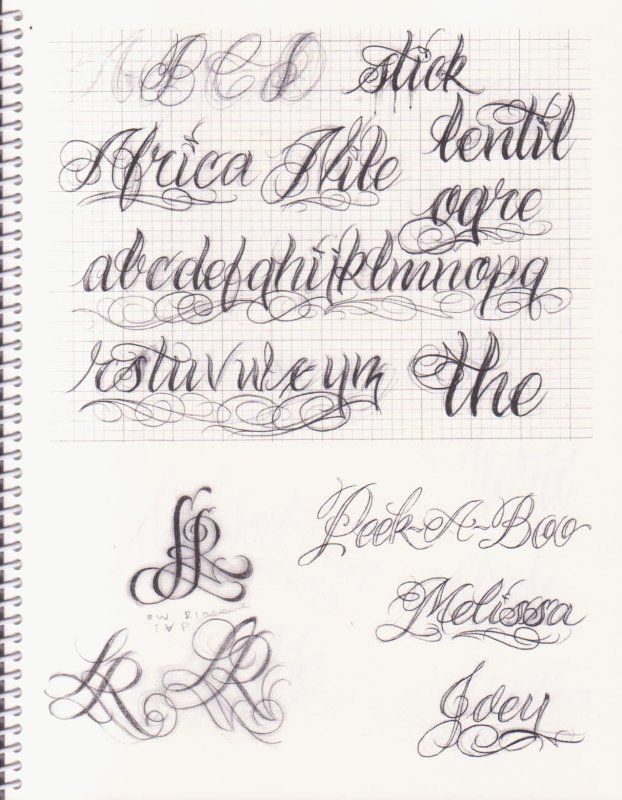 A B C D
stick
Africa Nile
lentil
ogre
abcdefghijklmnopq
rstuvwxyz
the
LR
Peek-A-Boo
Melissa
LR LR
Joey